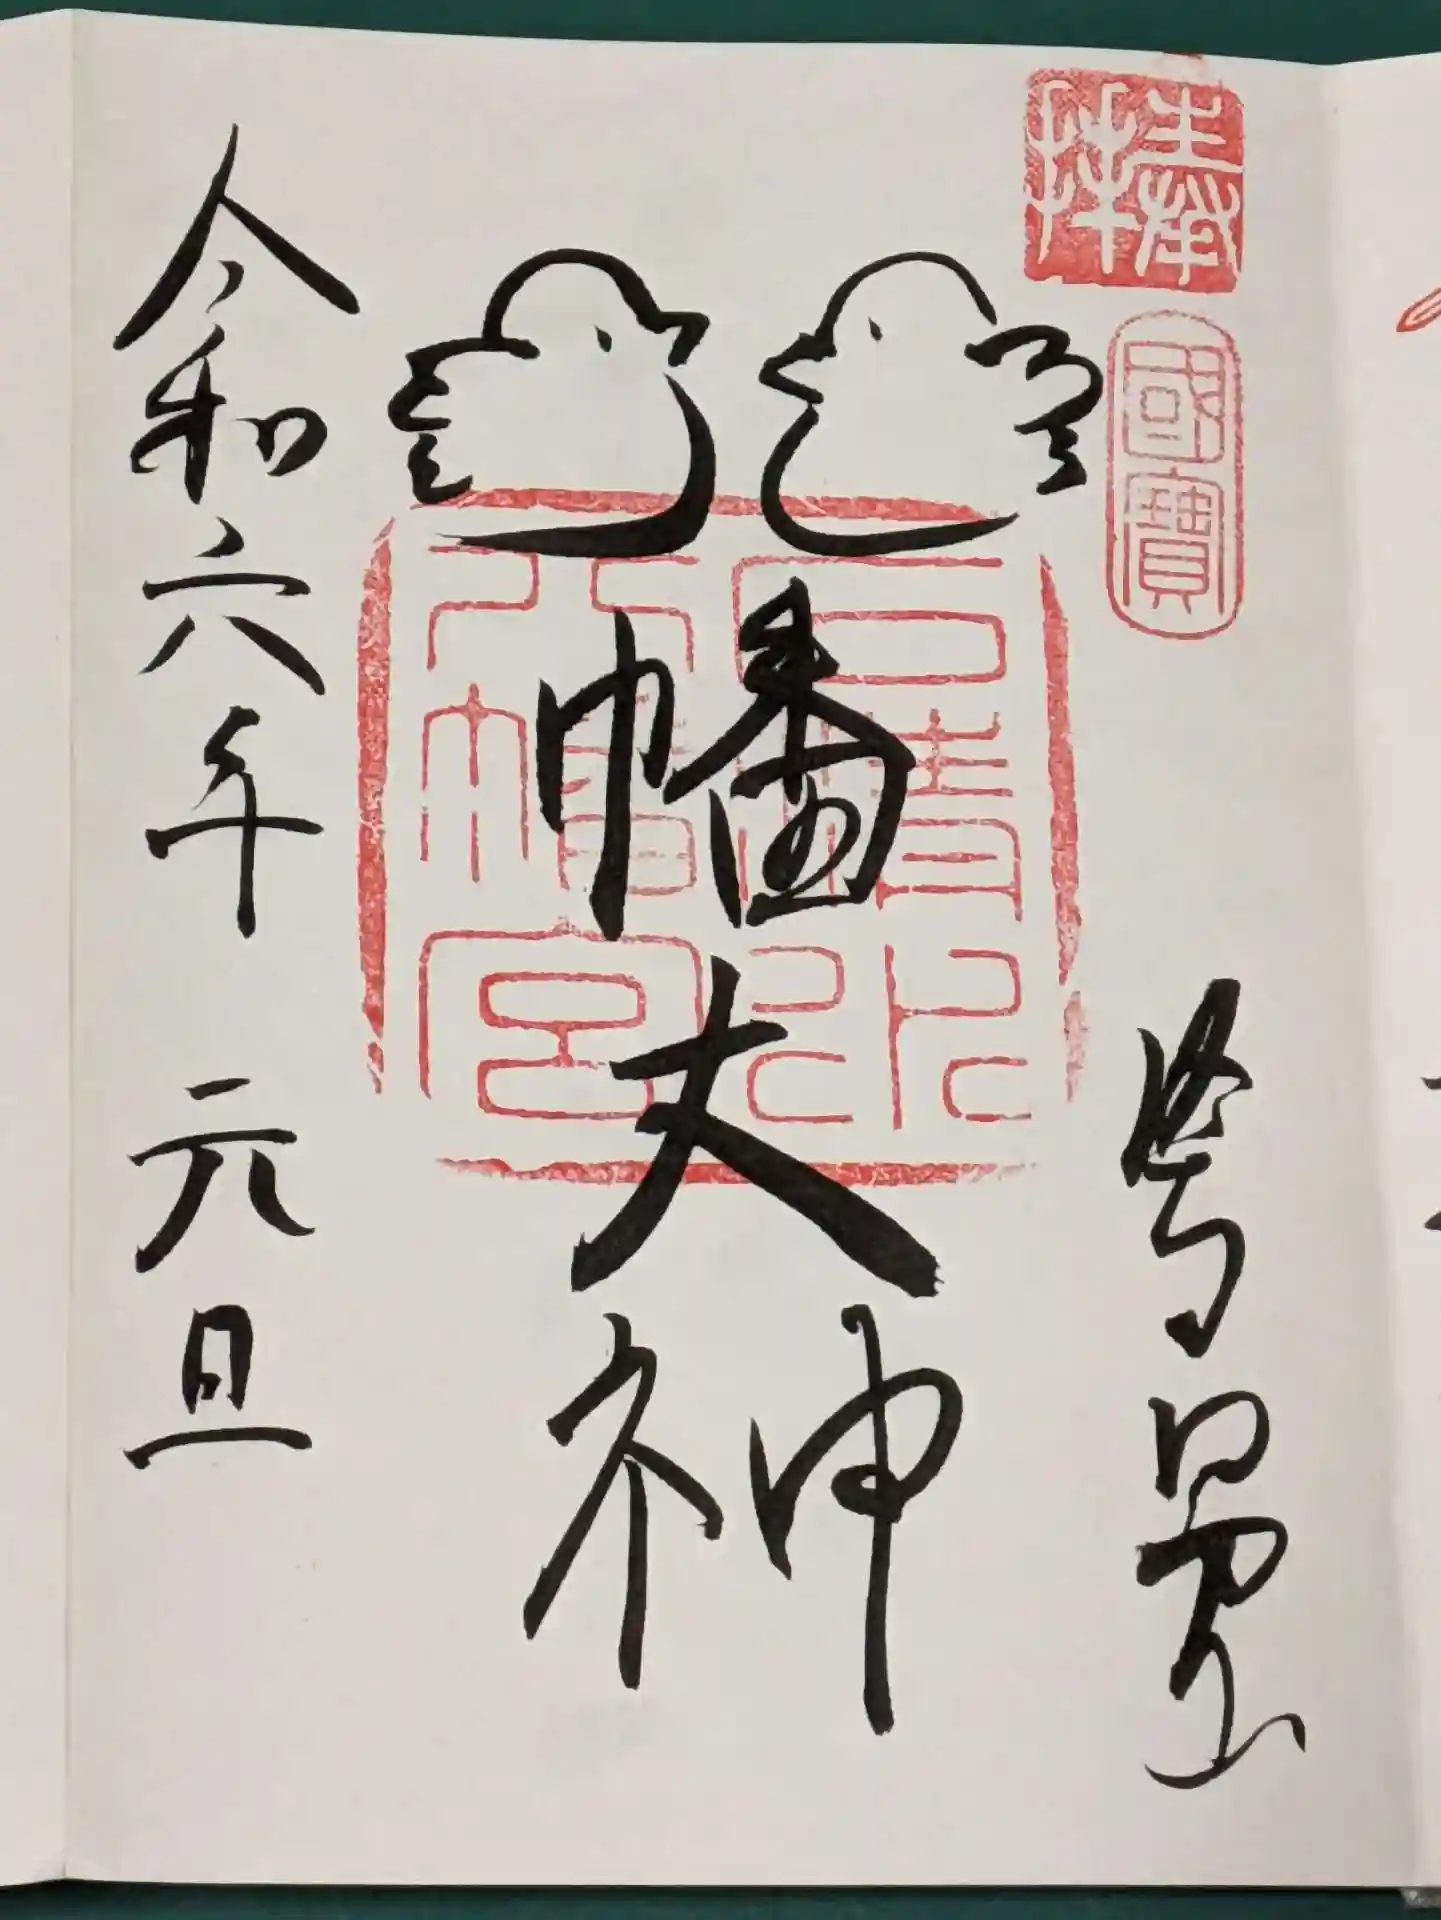 奉拝
國寶
八幡大神
石清水八幡宮
令和六年 元旦